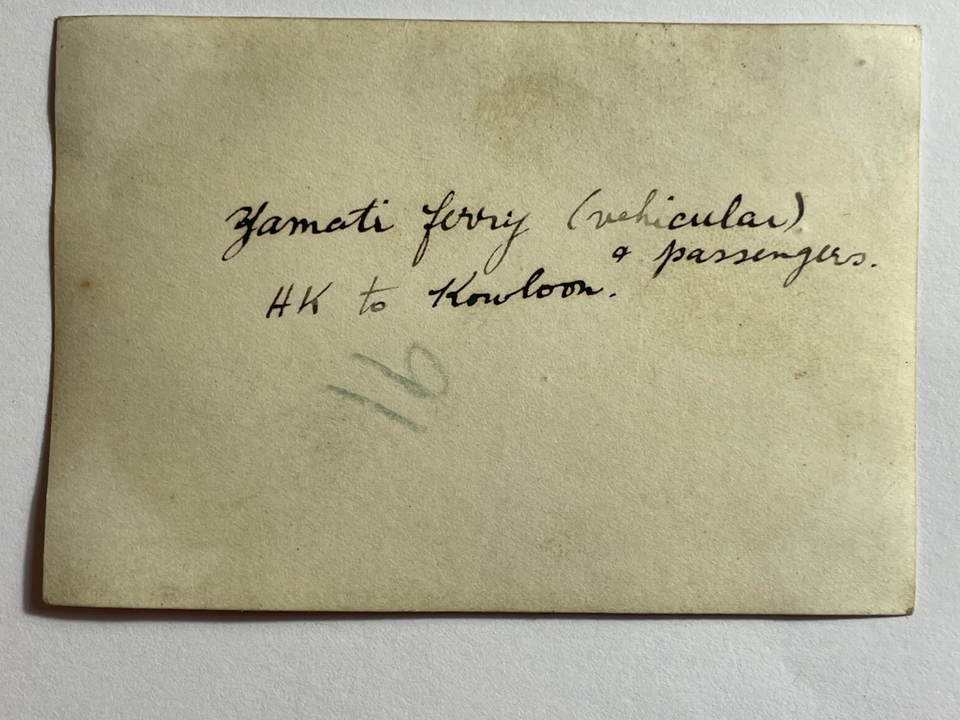 Yamati ferry (vehicular)
& passengers.
HK to Kowloon.
16